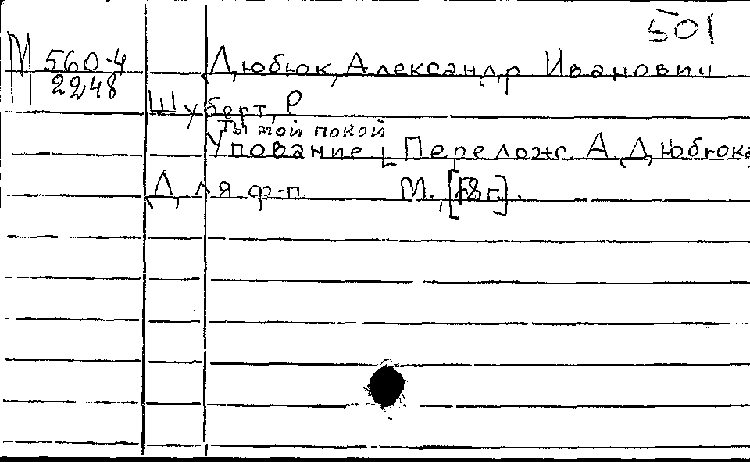 501
М 560-4 Дюбюк, Александр Иванович
2248
Шуберт, Р
Ты мой покой
Упование | Перелож. А. Дюбюка
Для ф-п М., [18 г].